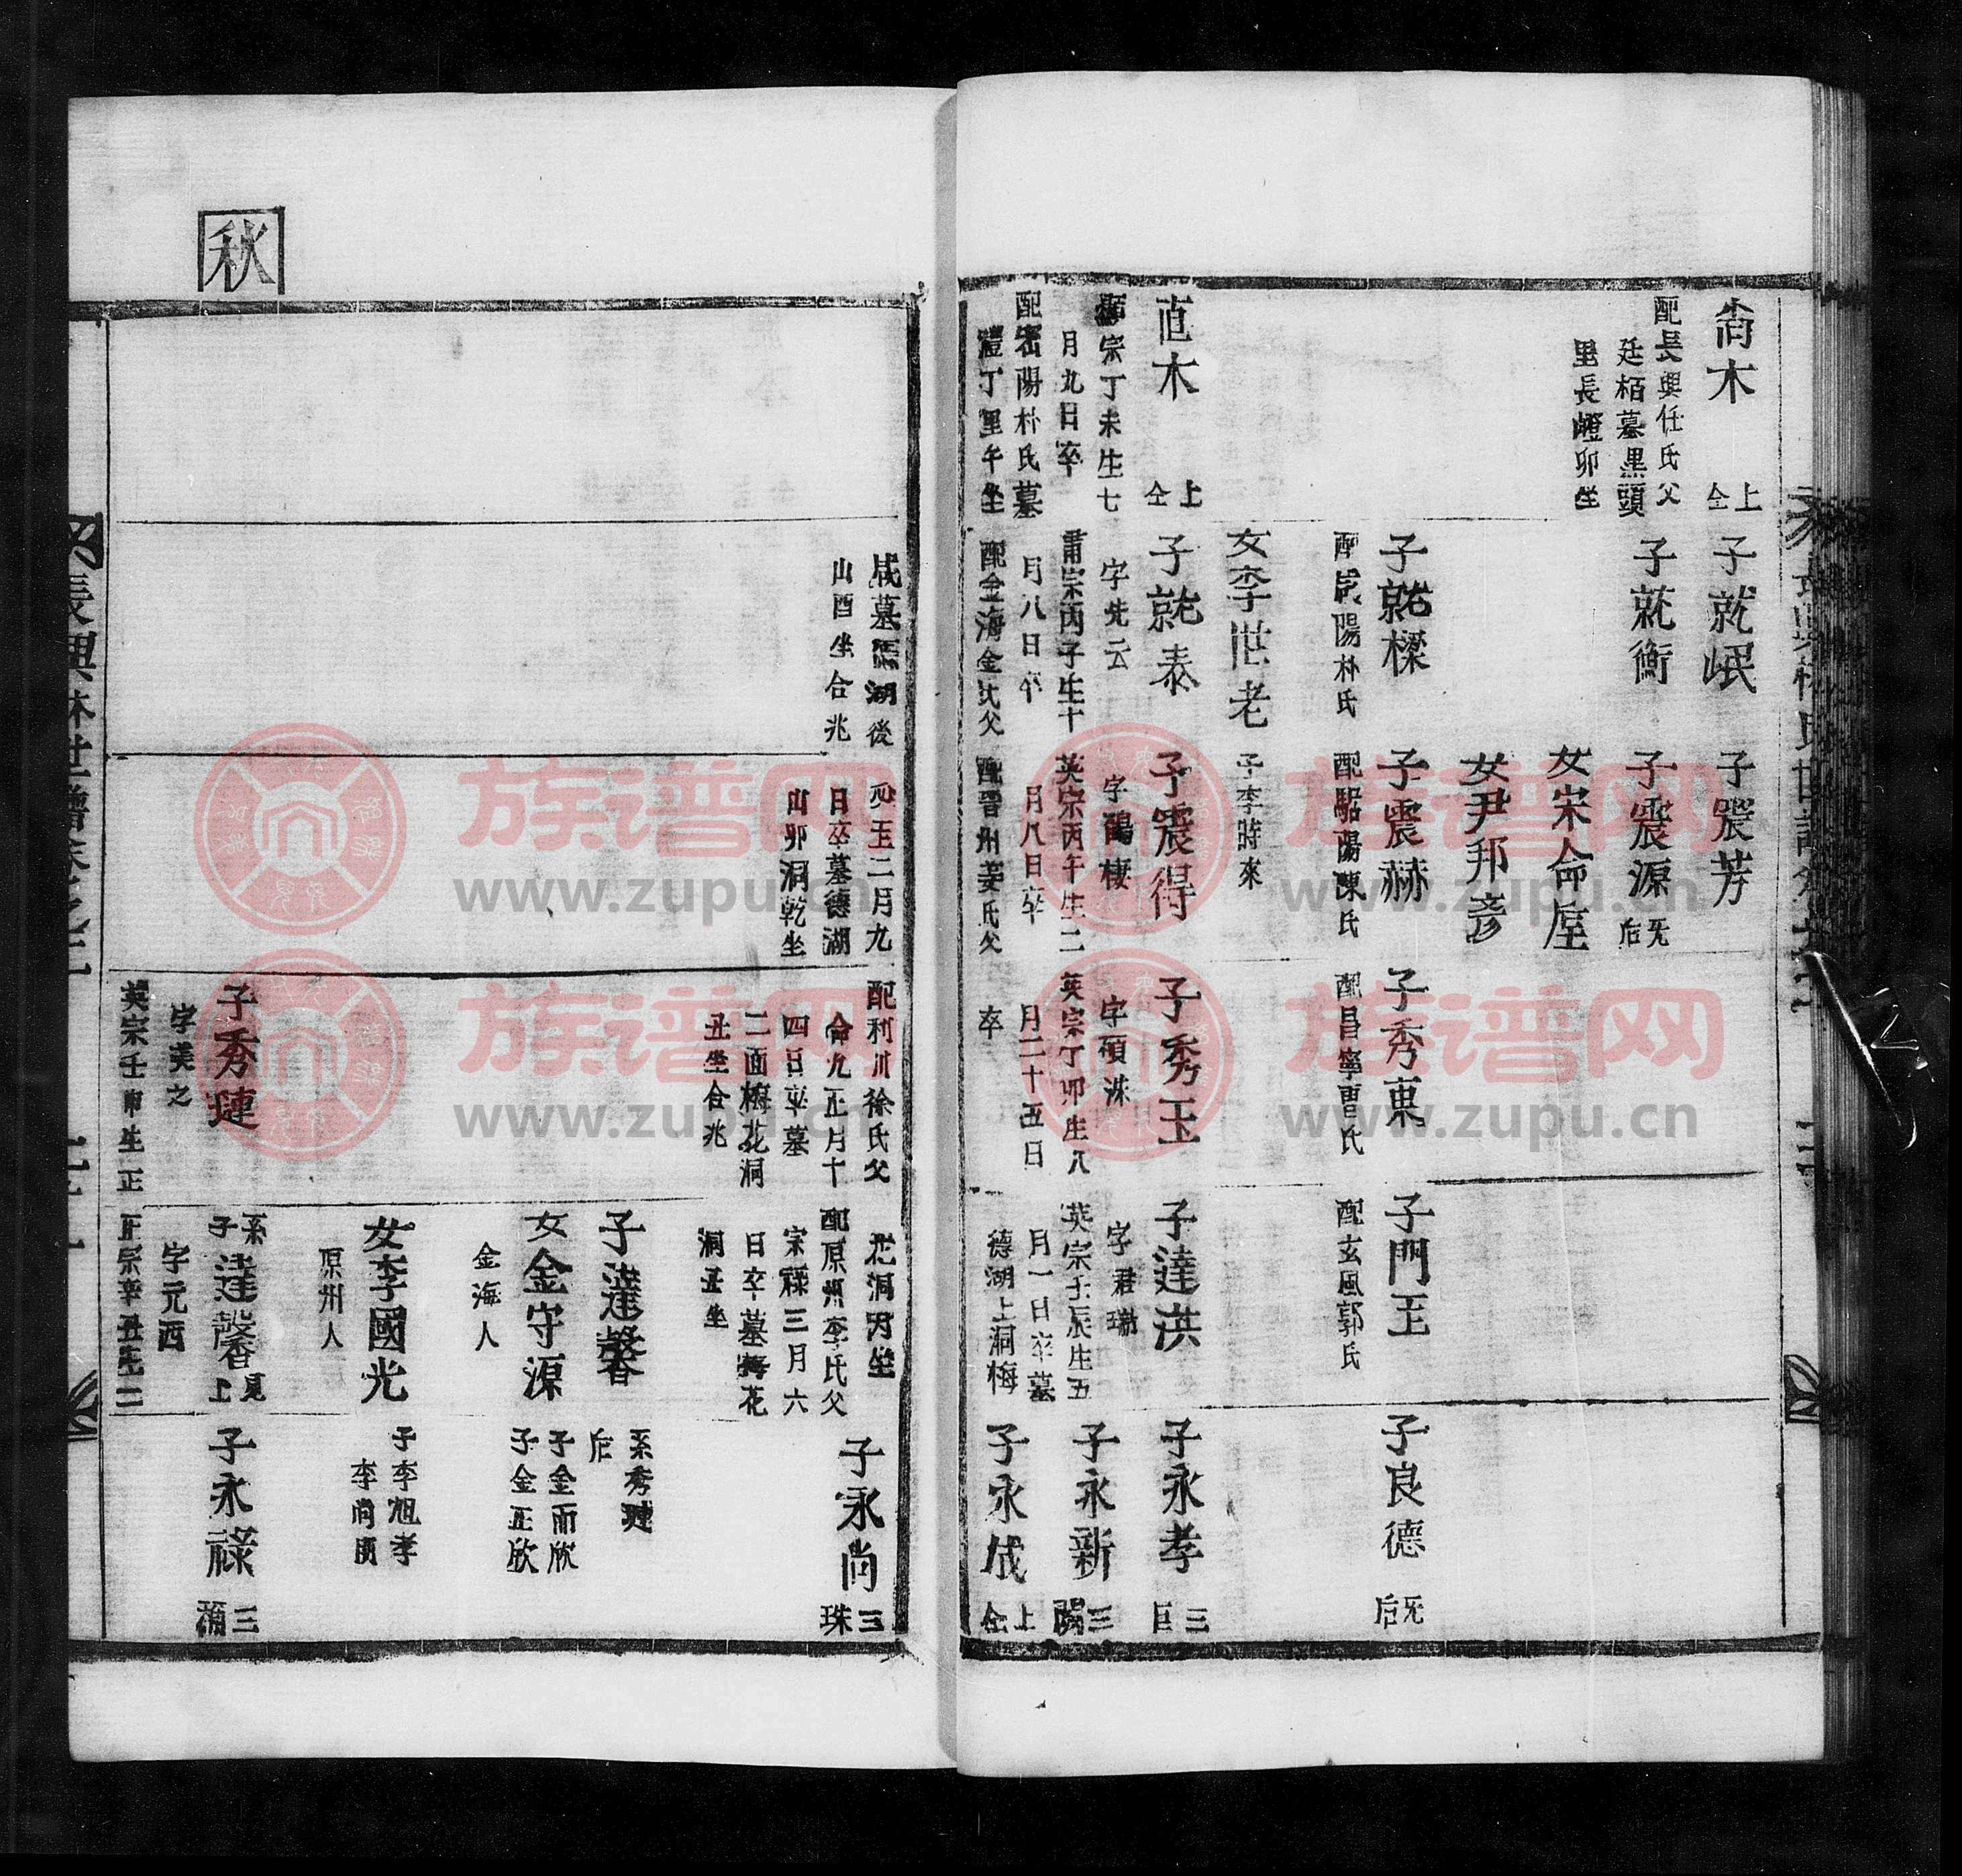 喬木 上仝
配長興任氏父
廷栢墓黑頭
里長嶝卯坐
直木 上仝
宗丁未生七
月九日卒
配密陽朴氏墓
澧丁里午坐
子就岷
子就衡
子就樑
配咸陽朴氏
女李世老
子就泰
字先云
肅宗丙子生十
月八日卒
配金海金氏父
子震芳
子震源 旡后
女宋命垕
女尹邦彦
子震赫
配陽陳氏
子李時來
子震得
字鶴棲
英宗丙午生二
月八日卒
配晋州姜氏父
子秀東
配昌寧曺氏
子秀玉
字碩洙
英宗丁卯生八
月二十五日
卒
子門玉
配玄風郭氏
子達洪
字君瑞
英宗壬辰生五
月一日卒墓
德湖上洞梅
子良德 旡后
子永孝 三巨
子永新 三陽
子永成 上仝
秋
成墓湖後
山酉坐合兆
必玉二月九
日卒墓德湖
山卯洞乾坐
配利川徐氏父
命九正月十
四日卒墓
二面梅花洞
丑坐合兆
子秀璉
字美之
英宗壬申生正
花洞丙坐
配原州李氏父
宋祿三月六
日卒墓梅花
洞丑坐
子達馨
女金守源
金海人
女李國光
原州人
系子達馨 見上
字元西
正宗辛丑生二
子永尚 三珠
系秀璉
后
子金而欣
子金正欣
子李旭孝
李尚
子永祿 三
長興林氏世譜卷之
族谱网
www.zupu.cn
族谱网
www.zupu.cn
族谱网
www.zupu.cn
族谱网
www.zupu.cn